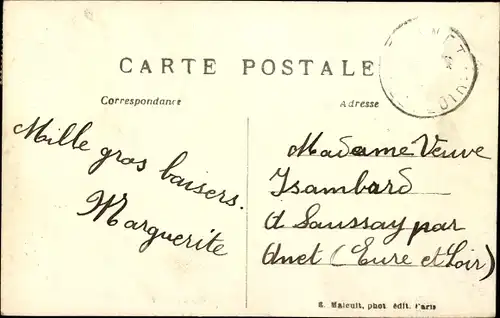 CARTE POSTALE
Correspondance
Adresse
Mille gros baisers.
Marguerite
Madame Veuve
Isambard
à Saussay par
Anet (Eure et Loir)
phot. édit. Paris